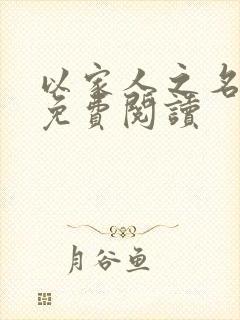 以家人之名
免費閱讀
月谷鱼